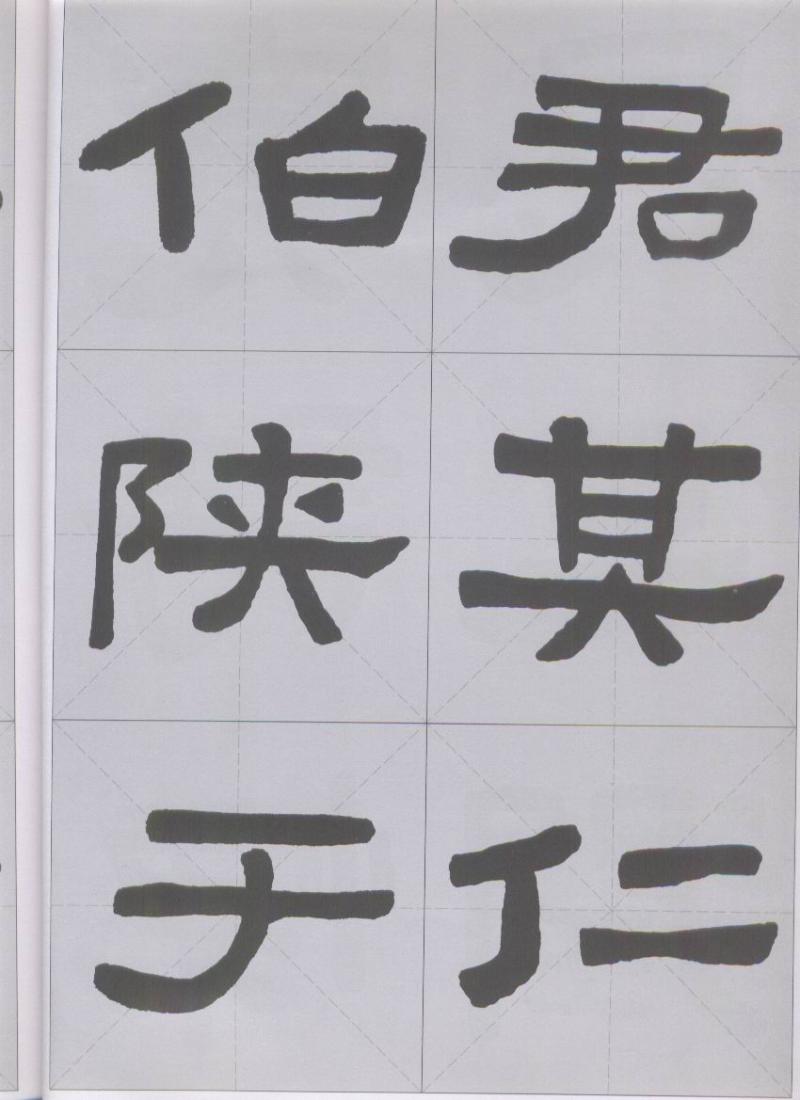 君其仁
伯陕于